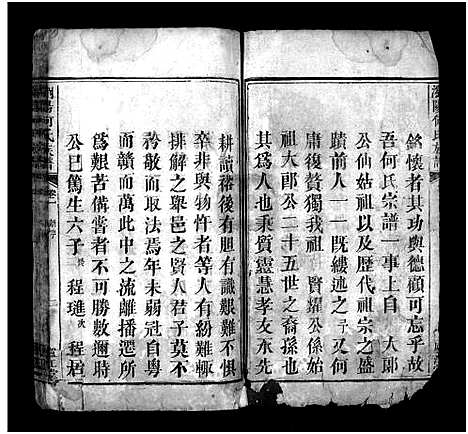 瀏陽何氏族譜
於懷者其功與德顧可忘乎故
吾何氏宗譜一事上自 大郎
公仙姑祖以及歷代祖宗之盛
蹟前人一一既縷述之予何
庸復贅獨我祖 賢耀公係始
祖大郎公二十五世之裔孫也
其爲人也秉質靈慧孝友承先
耕讀裕後有胆有識艱難不惧
卒非與物忤者等人有紛難輒
排解之舉邑之賢人君子莫不
矜敬而取法焉年未弱冠自粵
而贛而萬此中之流離播遷所
爲艱苦備嘗者不可勝數邇時
公已篤生六子 程璡 次 程琚
瀏陽何氏族譜 卷一